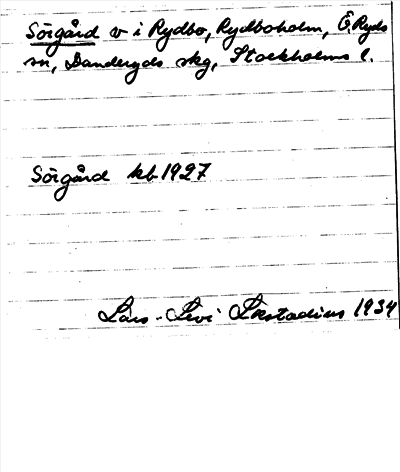 Sörgård v i Rydbo, Rydboholm, Ö. Ryds
sn, Danderyds skg, Stockholms l.
Sörgård kb 1927
Lars-Levi Læstadius 1934